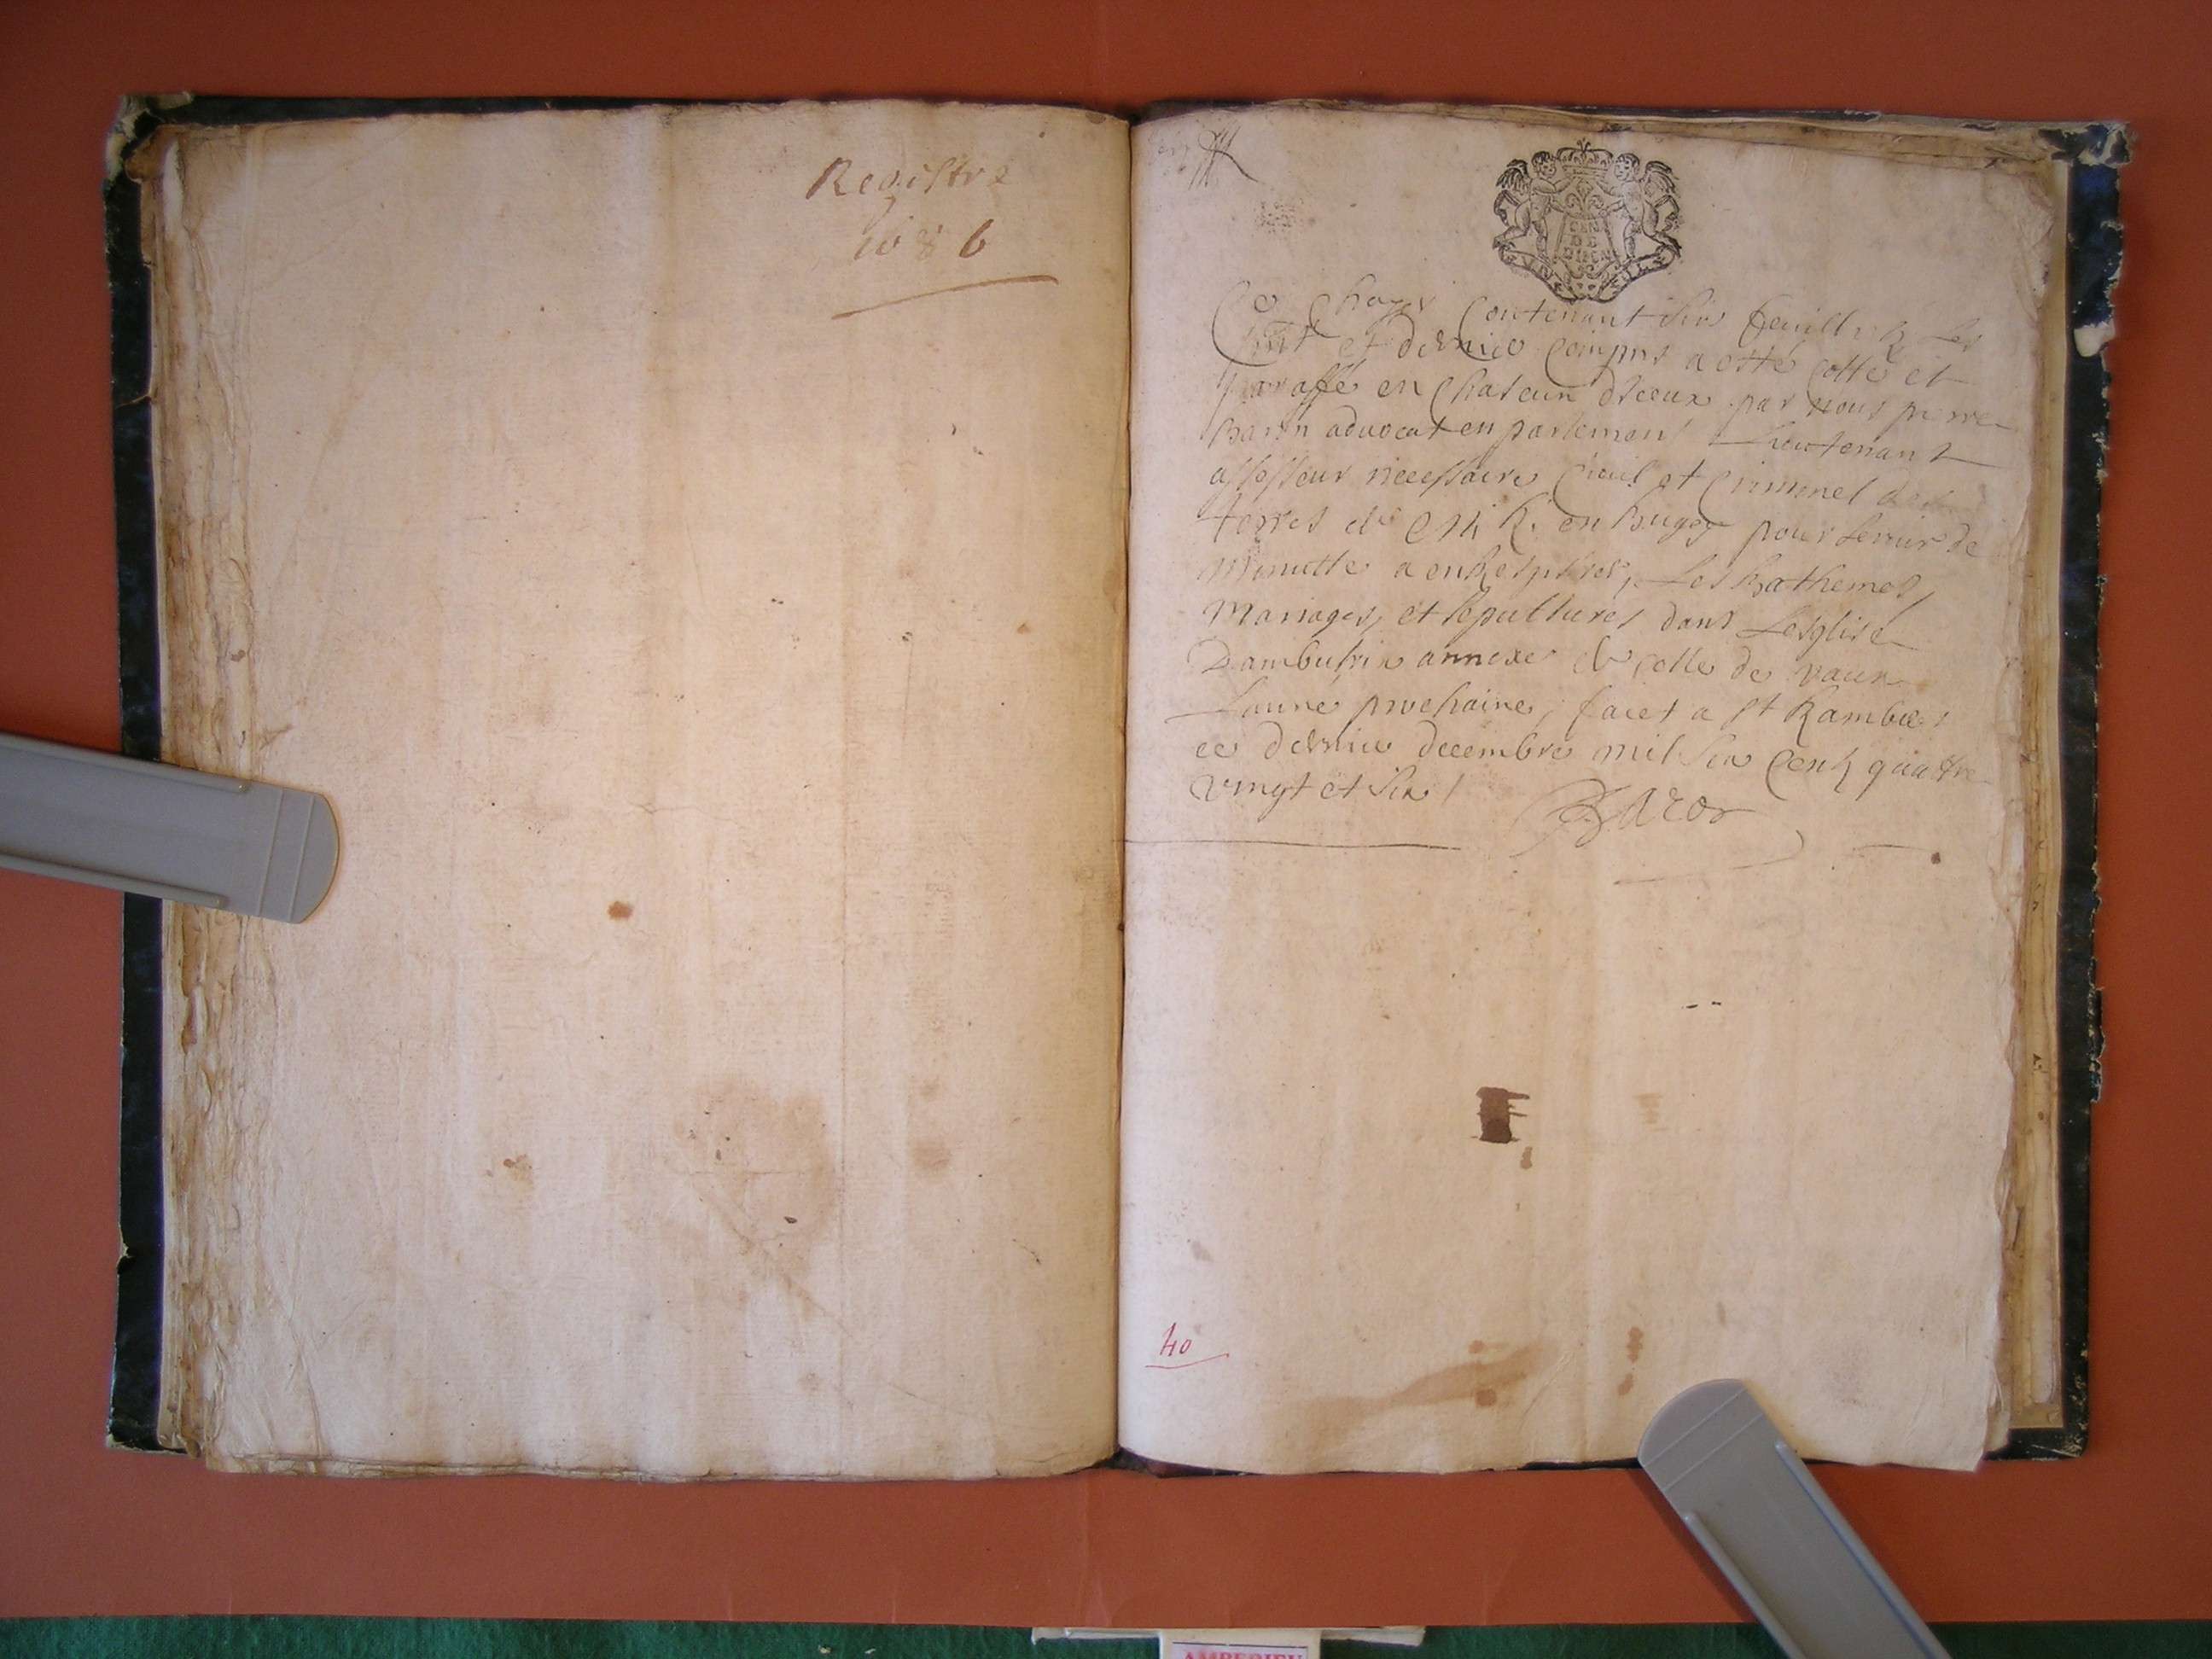 Registre
1686
GEN
DE
DIION
Ce Chayer Contenant Six feuillets les
et dernier Compris a esté Cotté et
paraffé en Chascun diceux par nous pierre
advocat en parlement Lieutenant
assesseur necessaire Civil et Criminel des
terres de en bugey pour servir de
Minutte a les Bathemes,
Mariages, et sepultures dans Lesglise
annexe de celle de vaux
Lanné prochaine, faict a St Rambert
ce dernier decembre mil six Cents quattre
vingt et six /
40
AMBERIEU